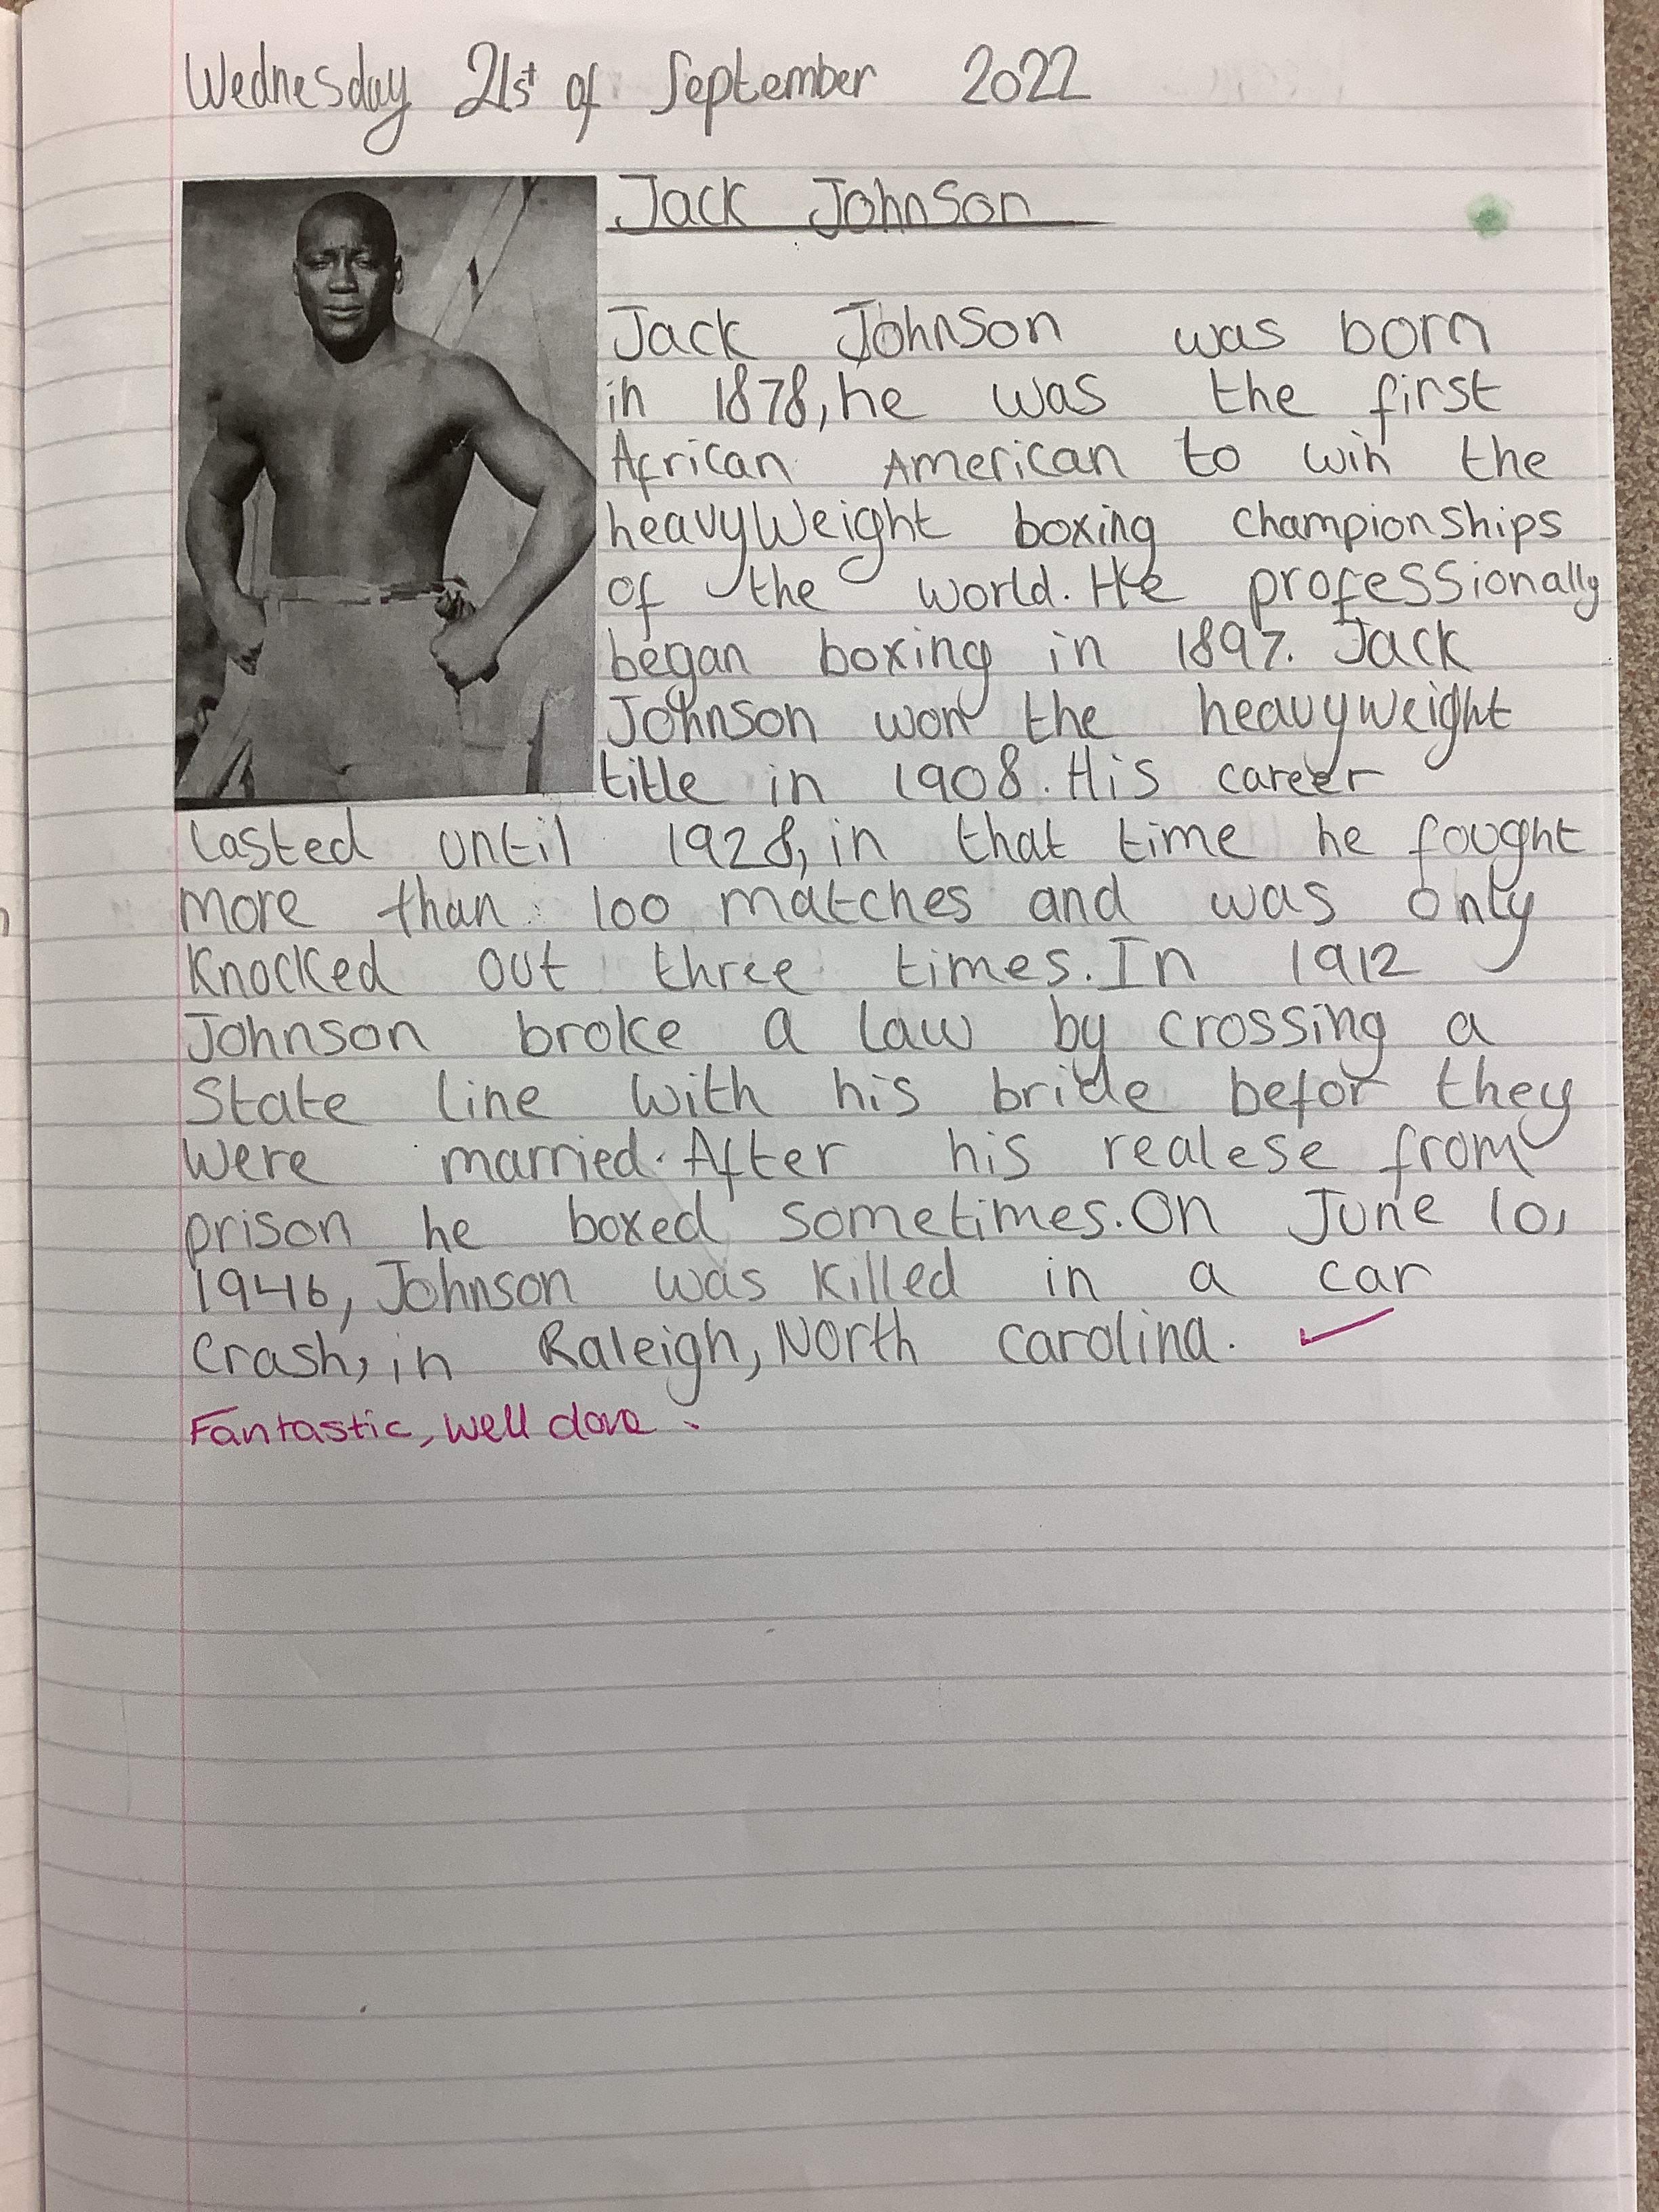 Wednesday 21st of September 2022
Jack Johnson
Jack Johnson was born
in 1878, he was the first
African American to win the
heavyweight boxing championships
of the world. He professionally
began boxing in 1897. Jack
Johnson won the heavyweight
title in 1908. His career
lasted until 1928, in that time he fought
more than 100 matches and was only
knocked out three times. In 1912
Johnson broke a law by crossing a
State line with his bride befor they
were married. After his realese from
prison he boxed sometimes. On June 10,
1946, Johnson was killed in a car
crash, in Raleigh, North carolina.
Fantastic, well done.